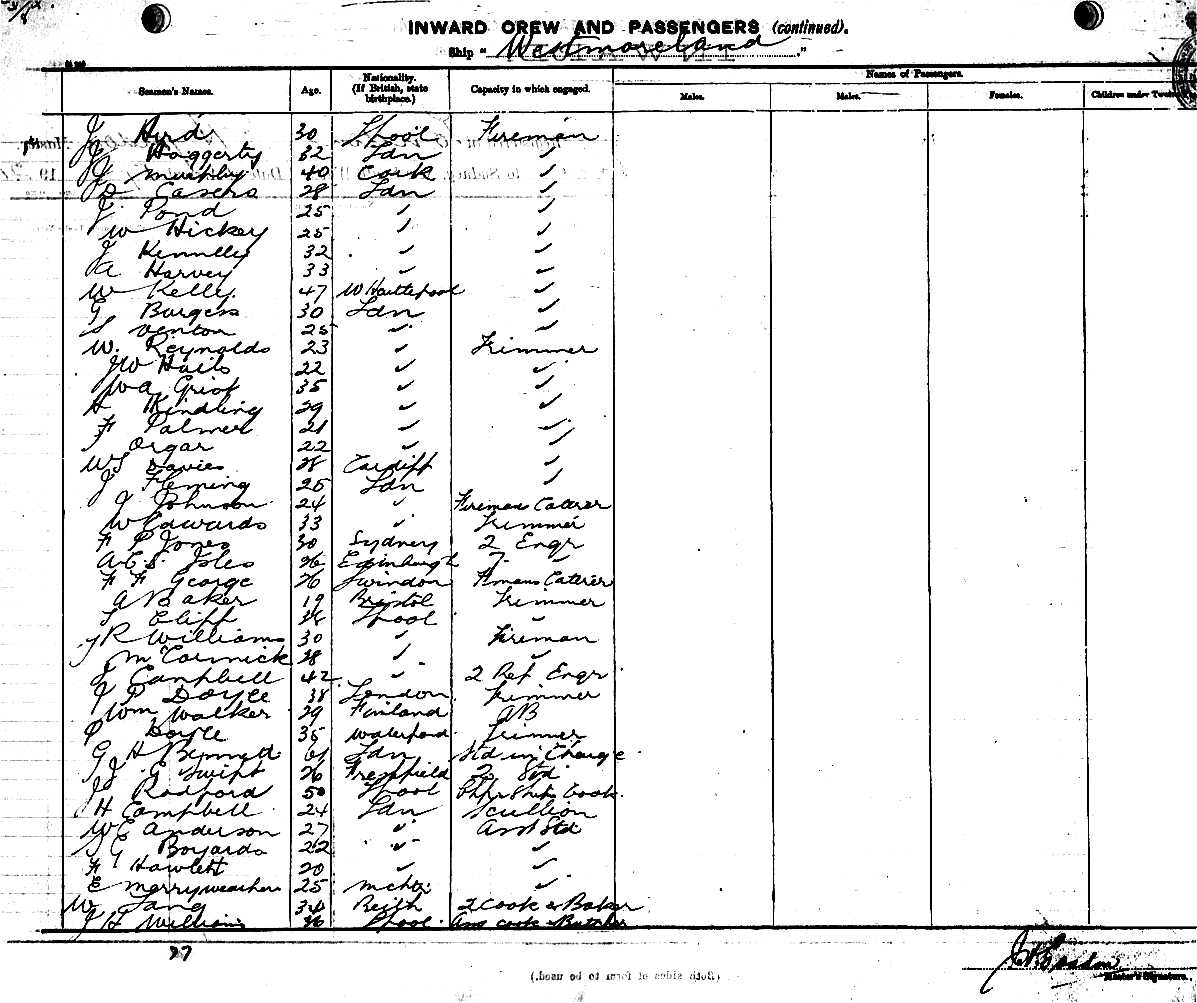 INWARD CREW AND PASSENGERS (continued).
Ship "Westmoreland"
Seamen's Names. Age. Nationality. (If British, state birthplace.) Capacity in which engaged. Names of Passengers.
Males. Males. Females. Children under
J Hird 30 L'pool Fireman
J Haggerty 32 Ldn ✓
J Murphy 40 Cork ✓
28 Ldn ✓
J Pond 25 ✓ ✓
W Hickey 25 ✓ ✓
J Kennelly 32 ✓ ✓
A Harvey 33 ✓ ✓
W Kelly 47 W Hartlepool ✓
G Burgess 30 Ldn ✓
S Venton 25 ✓ ✓
W. Reynolds 23 ✓ Trimmer
JW Hails 22 ✓ ✓
Wa 35 ✓ ✓
H Kindling 29 ✓ ✓
F Palmer 21 ✓ ✓
Orgar 22 ✓ ✓
WS Davies 28 Cardiff ✓
J Fleming 25 Ldn ✓
J Johnson 24 ✓ Firemans Caterer
W Edwards 33 ✓ Trimmer
F P Jones 30 Sydney 2 Engr
A.E.S. Isles 26 Edinburgh 7 ✓
F F George 26 Swindon Fimans Caterer
A Baker 19 Bristol Trimmer
Cliff 28 L'pool ✓
J R Williams 30 ✓ Fireman
J McCormick 28 ✓ ✓
Campbell 42 ✓ 2 Ref Engr
J P Doyle 38 London Trimmer
Wm Walker 29 Finland AB
P Doyle 35 Waterford Trimmer
G H Bennett 61 Ldn Std in Charge
J G Swift 26 Freshfield 2 Std
J Radford 50 L'pool Chf & Ships Cook
H Campbell 24 Ldn Scullion
W E Anderson 27 ✓ Asst Std
G 22 ✓ ✓
F Howlett 20 ✓ ✓
E Merryweather 25 Mchtr ✓
W Lang 34 2 Cook & Baker
J H Williams 26 L'pool Ass cook & Butcher
(Both sides of form to be used.)
Master's Signature.